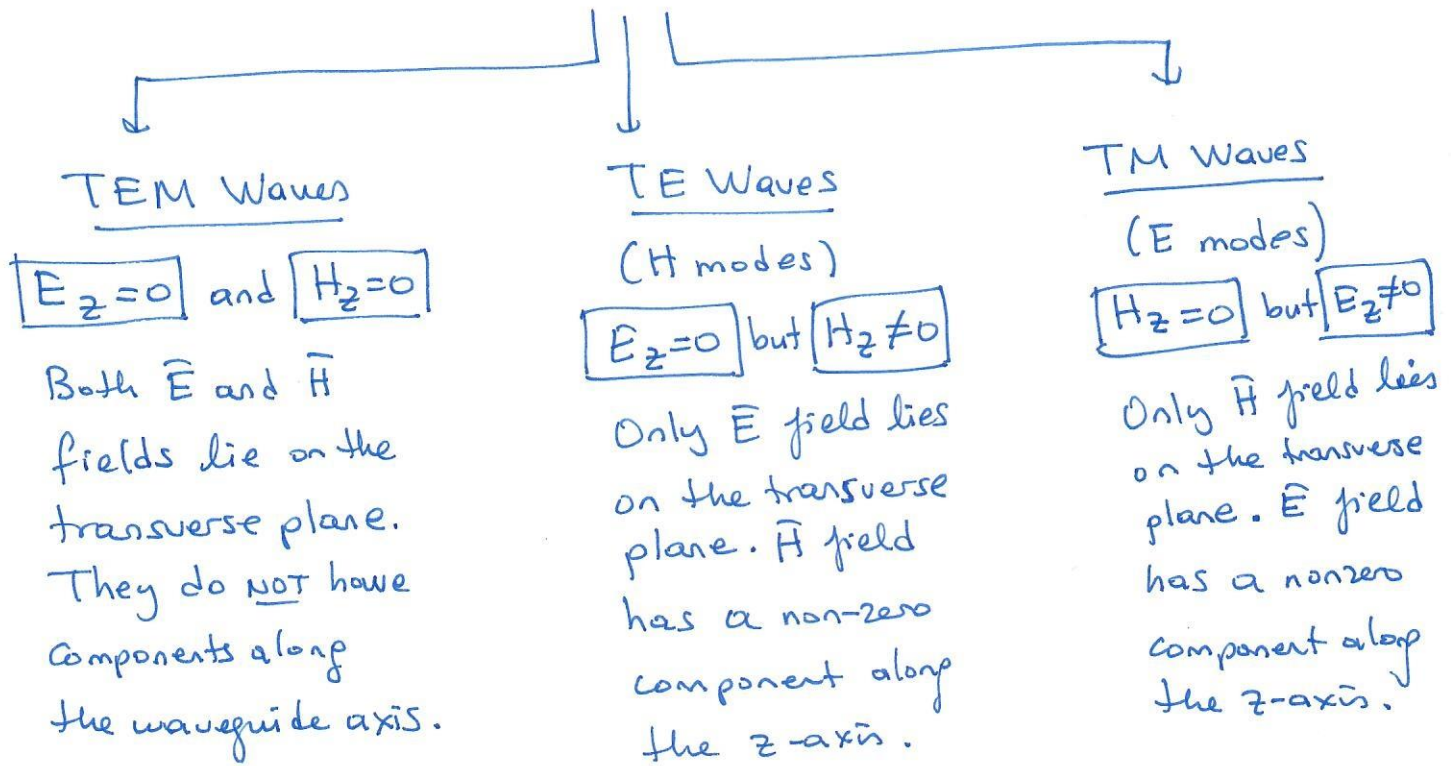 TEM Waves
E_z=0 and H_z=0
Both E̅ and H̅
fields lie on the
transverse plane.
They do NOT have
components along
the waveguide axis.
TE Waves
(H modes)
E_z=0 but H_z≠0
Only E̅ field lies
on the transverse
plane. H̅ field
has a non-zero
component along
the z-axis.
TM Waves
(E modes)
H_z=0 but E_z≠0
Only H̅ field lies
on the transverse
plane. E̅ field
has a nonzero
component along
the z-axis.